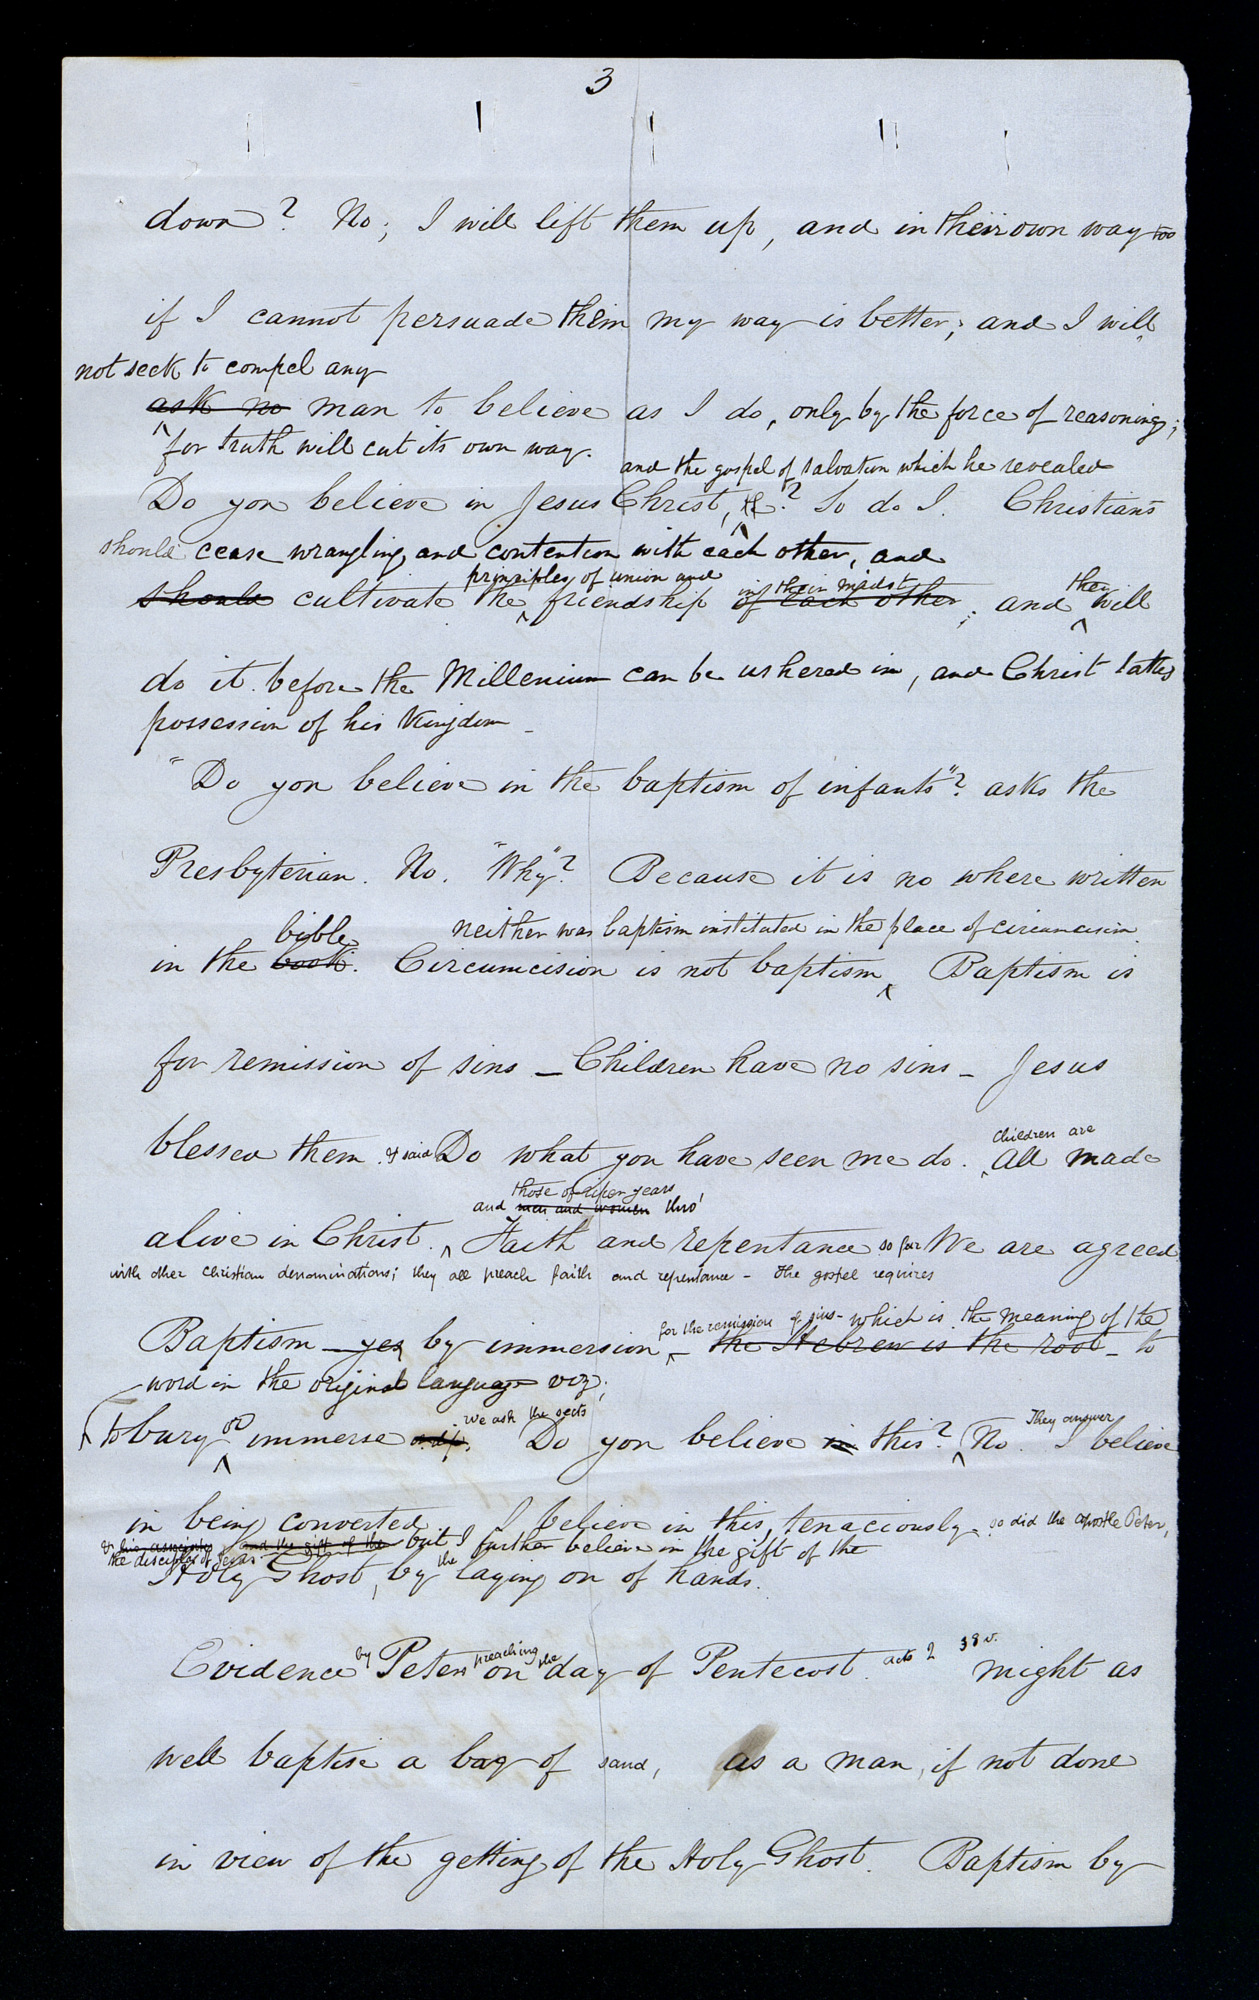 3
down? No; I will lift them up, and in their own way too
if I cannot persuade them my way is better; and I will
not seek to compel any
ask no man to believe as I do, only by the force of reasoning;
for truth will cut its own way.
and the gospel of salvation which he revealed
Do you believe in Jesus Christ, ? So do I. Christians
should cease wrangling and contention with each other, and
principles of union and in their midst
should cultivate the friendship of each other; and they will
do it before the Millenium can be ushered in, and Christ takes
possession of his Kingdom _
"Do you believe in the baptism of infants"? asks the
Presbyterian. No. "Why"? Because it is no where written
bible neither was baptism instituted in the place of circumcision.
in the book. Circumcision is not baptism Baptism is
for remission of sins _ Children have no sins _ Jesus
children are
blessed them. & said Do what you have seen me do. All made
those of riper years
and men and women thro'
alive in Christ. Faith and repentance so far We are agreed
with other Christian denominations; they all preach faith and repentance - The gospel requires
for the remission of sins - which is the meaning of the
Baptism _ yes by immersion the Hebrew is the root _ to
word in the original language viz;
we ask the sects They answer
to bury or immerse Do you believe in this? No. I believe
in being converted I believe in this, tenaciously - so did the apostle Peter,
and the gift of the but I further believe in the gift of the
the disciples of Jesus
Holy Ghost, by the laying on of hands.
Evidence by Peters preaching on the day of Pentecost. acts 2 38 v. might as
well baptise a bag of sand, as a man, if not done
in view of the getting of the Holy Ghost. Baptism by